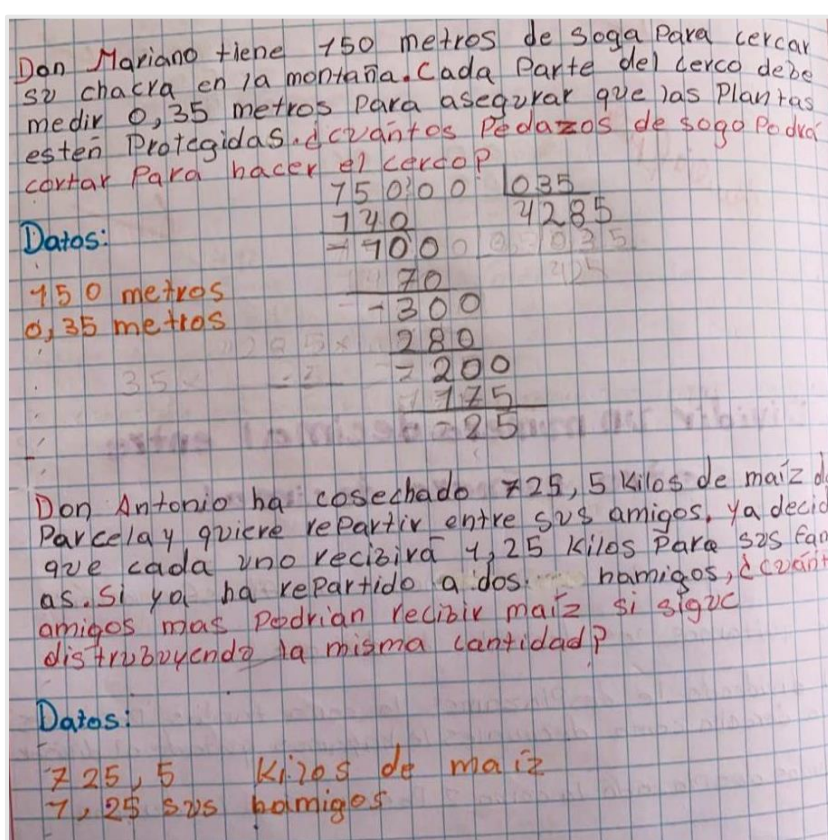 Don Mariano tiene 150 metros de soga Para cercar
su chacra en la montaña. Cada Parte del cerco debe
medir 0,35 metros Para asegurar que las Plantas
esten Protegidas. ¿cuántos Pedazos de sogo Podrá
cortar Para hacer el cerco?
150'00 035
140 4285
Datos:
-100
70
150 metros
-300
0,35 metros
280
-200
175
-25
Don Antonio ha cosechado 725,5 Kilos de maíz d
Parcela y quiere repartir entre sus amigos, ya decid
que cada uno recibirá 1,25 Kilos Para sus fam
as. Si ya ha repartido a dos hamigos, ¿cuánt
amigos mas Podrian recibir maíz si sigue
distrubuyendo la misma cantidad?
Datos:
725,5 Kilos de maíz
1,25 sus hamigos